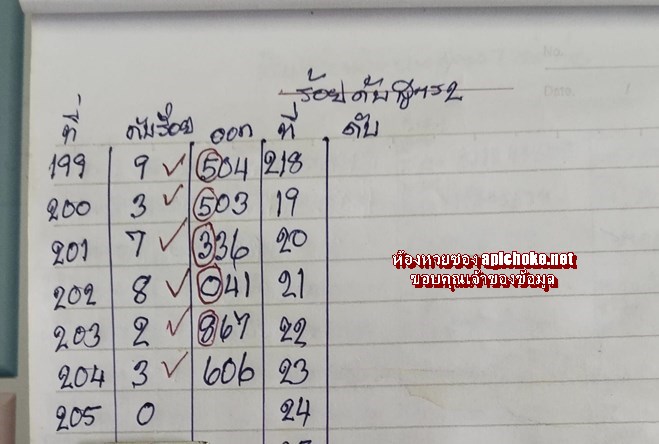 No.
Date.
ร้อยดับสูตร2
ที่ ดับร้อย ออก ที่ ดับ
199 9 ✓ 504 218
200 3 ✓ 503 19
201 7 ✓ 336 20
202 8 ✓ 041 21
203 2 ✓ 867 22
204 3 ✓ 606 23
205 0 24
ห้องหวยซอง apichoke.net
ขอบคุณเจ้าของข้อมูล